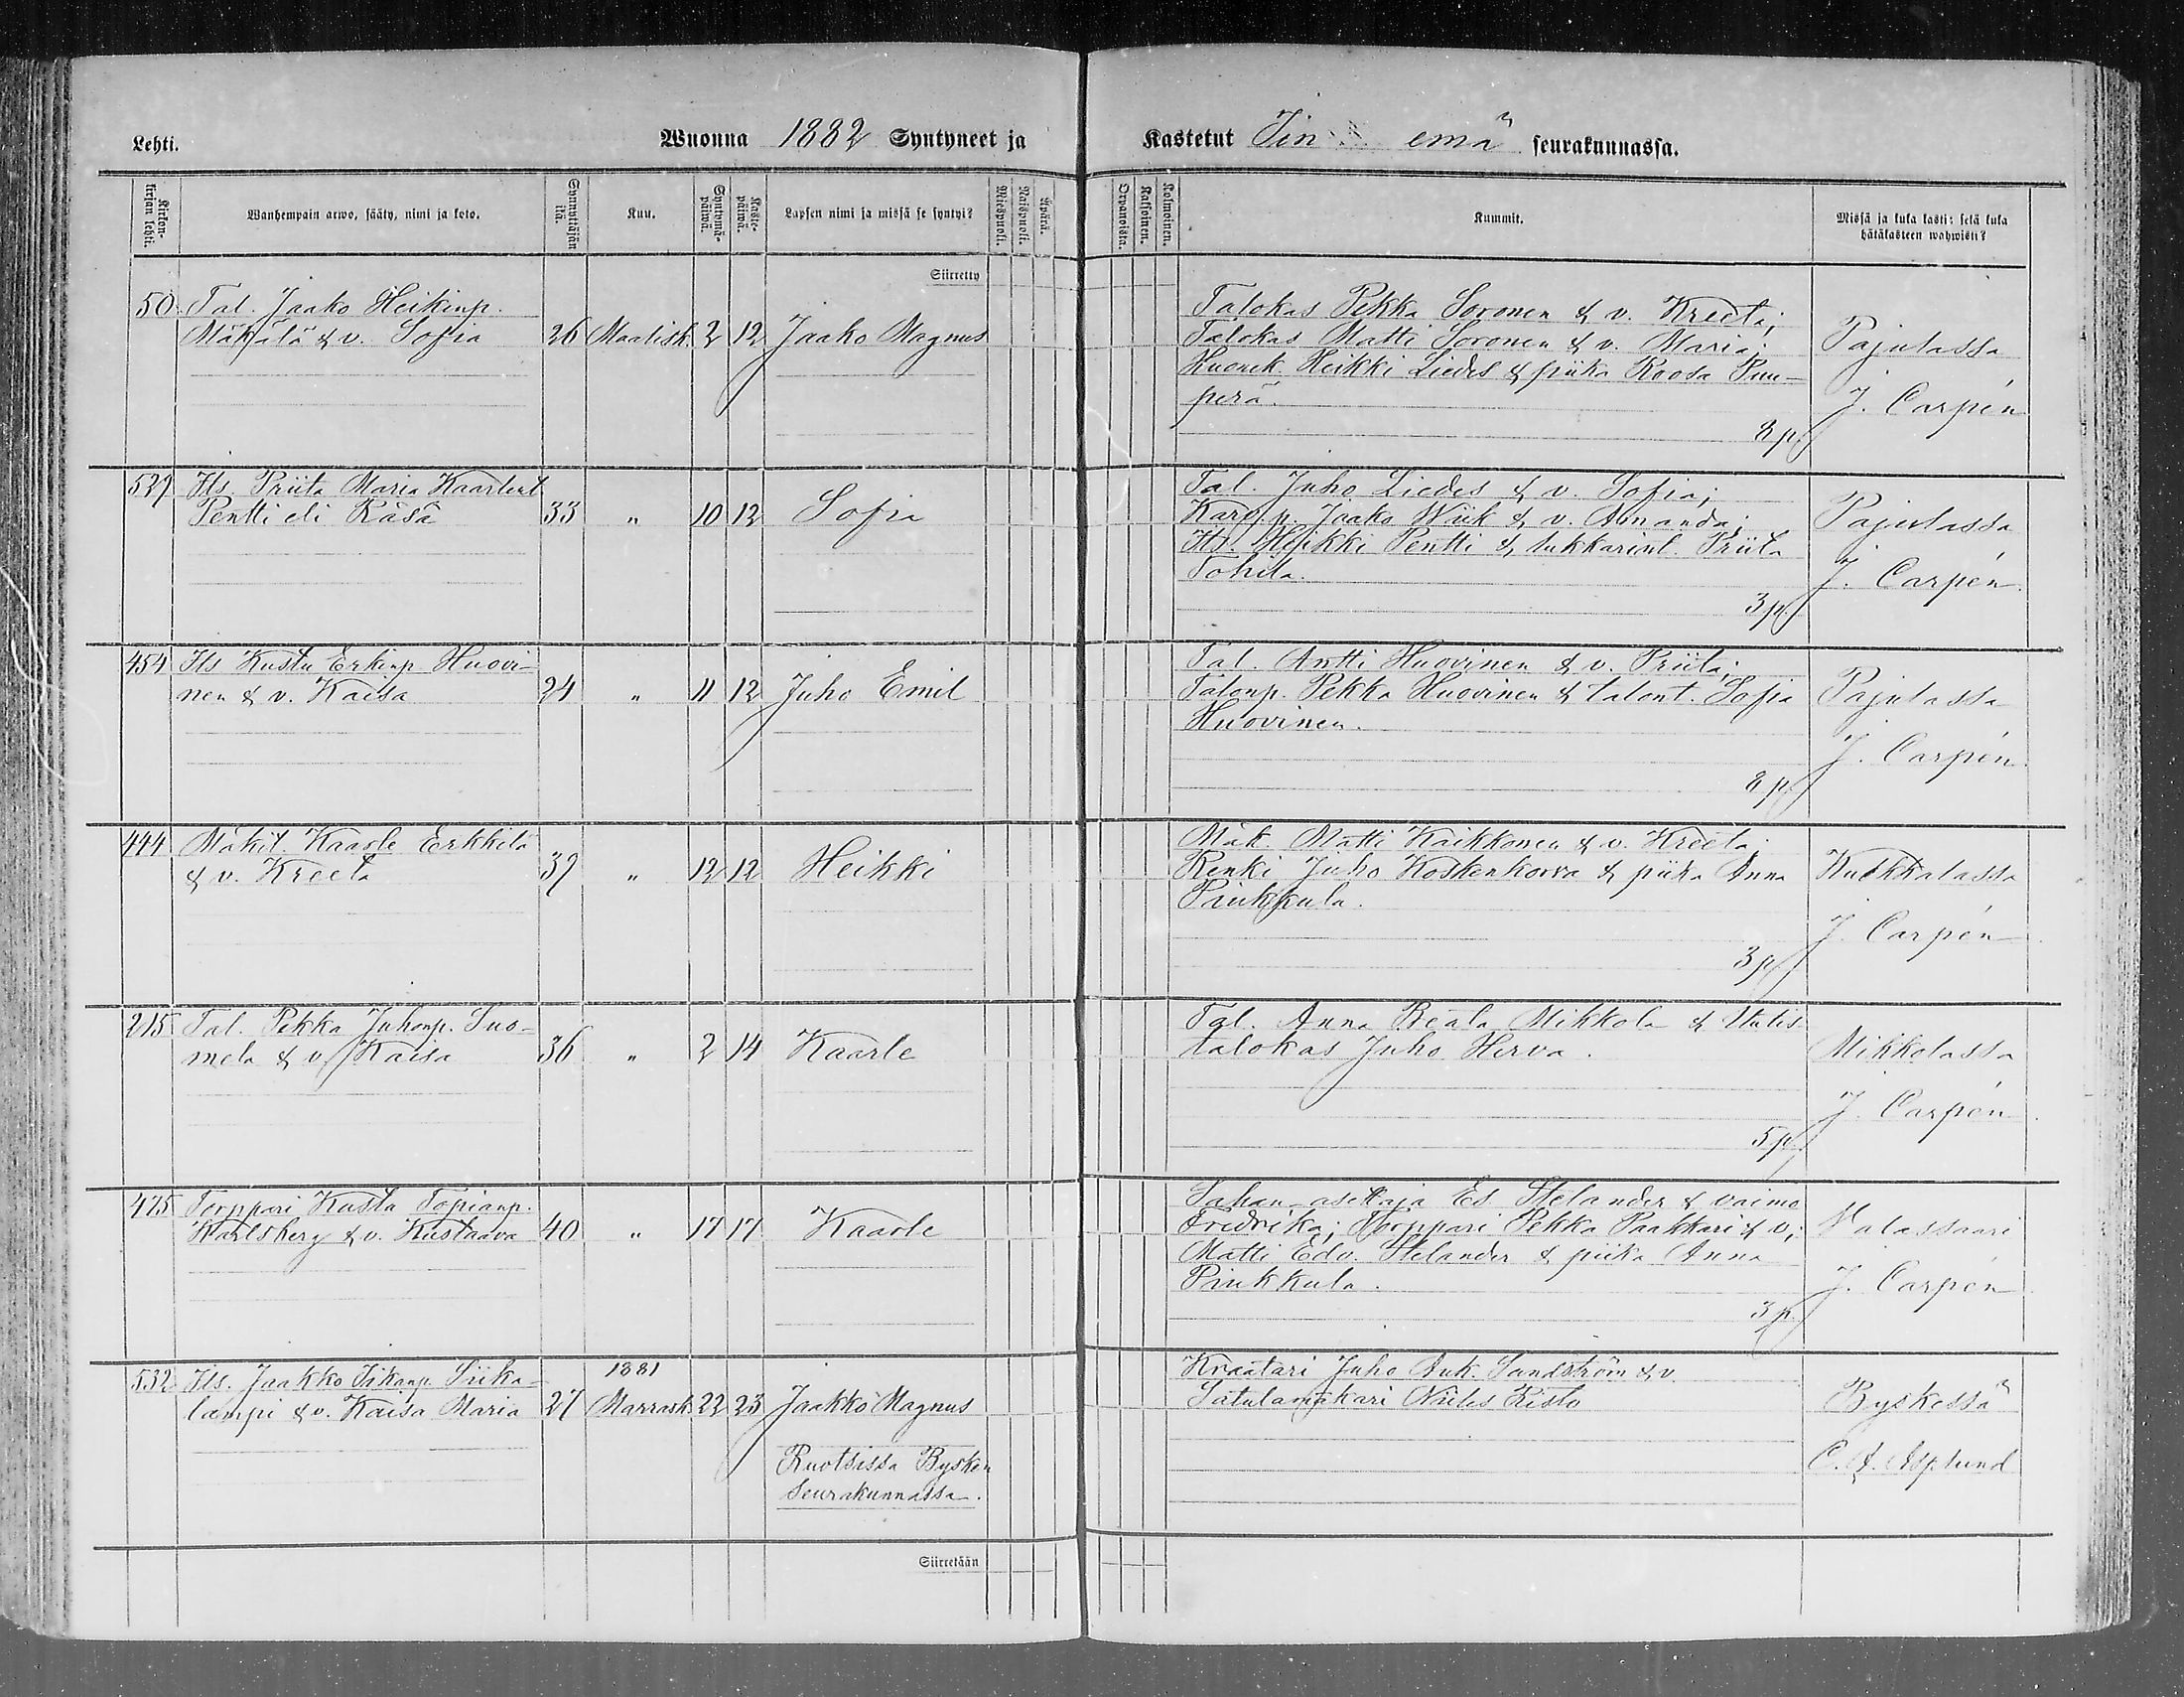 Lehti. Wuonna 1882 Syntyneet ja Kastetut Iin emä seurakunnassa.
Kirkon-kirjan lehti.
Wanhempain arwo, sääty, nimi ja koto.
Synnyttäjän ikä.
Kuu.
Syntymä-päiwä.
Kaste-päiwä.
Lapsen nimi ja missä se syntyi?
Miespuoli.
Naispuoli.
Äpärä.
Orpanoista.
Kaksoinen.
Kolmoinen.
Kummit.
Missä ja kuka kasti; sekä kuka
hätäkasteen wahwisti?
Siirretty
50 Tal. Jaako Heikinp.
Mäkälä & v. Sofia 26 Maalisk. 2 12 Jaako Magnus
Talokas Pekka Soronen & v. Kreeta;
Talokas Matti Soronen & v. Maria;
Huonek. Heikki Liedes & piika Roosa Puu-
perä.
8 p
Pajulassa
J. Carpén
529 Its. Priita Maria Kaarlent
Pentti eli Räsä 33 " 10 12 Sofia
Tal. Juho Liedes & v. Sofia;
Karp.p. Jaako Wiik & v. Amanda;
Its. Heikki Pentti & lukkarinl. Priita
Tohila.
3 p
Pajulassa
J. Carpén
454 Its Kustu Erkinp. Huovi-
nen & v. Kaisa 24 " 11 12 Juho Emil
Tal. Antti Huovinen & v. Priita;
Talonp. Pekka Huovinen & talont. Sofia
Huovinen.
8 p
Pajulassa
J. Carpén
444 Mäkit. Kaarle Erkkilä
& v. Kreeta 39 " 12 12 Heikki
Mäk. Matti Kaikkonen & v. Kreeta;
Renki Juho Koskenkorva & piika Anna
Piukkula.
3 p
Kuokkalassa
J. Carpén
215 Tal. Pekka Juhonp. Suo-
mela & v. Kaisa 36 " 2 14 Kaarle
Tal. Anna Beata Mikkola & Uutis
talokas Juho Herva.
5 p.
Mikkolassa
J. Carpén
475 Torppari Kusta Topianp.
Karlsberg & v. Kustaava 40 " 17 17 Kaarle
Sahan-asettaja Es. Helander & vaimo
Fredrika; Torppari Pekka Paakkari & v;
Matti Edv. Helander & piika Anna
Piukkula.
3 p.
Halassaari
J. Carpén
532 Its. Jaakko Iikanp. Siika-
lampi & v. Kaisa Maria 27 1881
Marrask. 22 23 Jaakko Magnus
Ruotsissa Bysken
Seurakunnassa.
Kraatari Juho Auk. Sundström & v.
Satulamakari Niiles Risto
Byskessä
C. A. Asplund
Siirretään